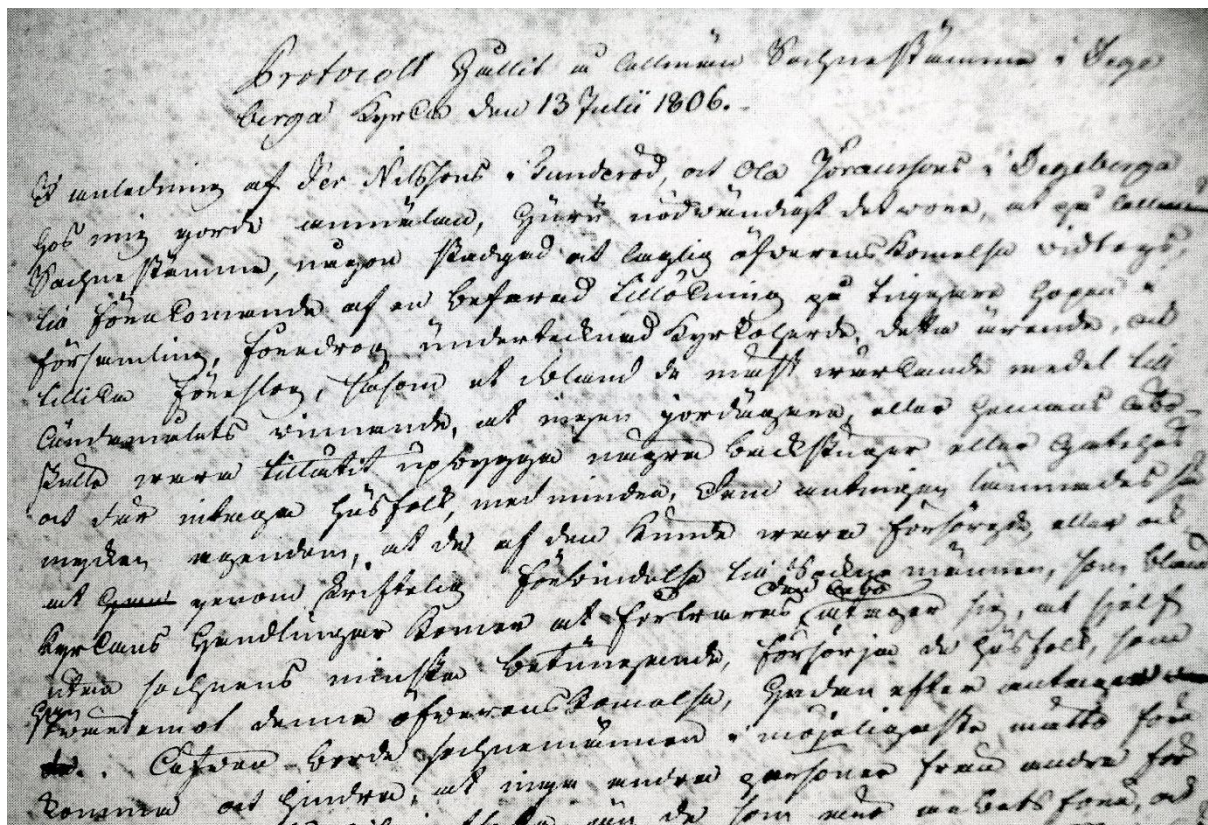 Protocoll Hållit å allmän Sochnestämma i Dege
berga Kyrka den 13 Julii 1806.
I anledning af Per Nilssons i Sunderöd, och Ola Jöranssons i Degeberga
hos mig gorde anmälan, huru nödvändigt det vore, at på allmän
Sochnestämma, någon stadgad och laglig öfverenskomelse vidtogs,
til förekomande af en befarad tillökning på tiggare hopen i
församling, föredrog undertecknad Kyrkoherde, detta ärende, och
tillika föreslog, såsom et ibland de mäst wärkande medel till
ändamålets vinnande, at ingen jordägare, eller hemmans åbo
skulle wara tillåtit upbygga några backstugor eller gatehus
och där intaga husfolk, med mindre, dem antingen lämnades så
mycken egendom, at de af den kunde wara försörgde, eller och
at genom skriftelig förbindelse til Sochne männen, som bland
den åbo
Kyrkans Handlingar komer at förwaras åtager sig, at sjelf
utan sochnens minsta betungande, försörja de husfolk, som
han
twärtemot denna öfverenskomelse, hädan efter antager
Äfven borde sochnemännen i möjeligaste måtto före
komma och hindra, at inga andra personer från andra för
än de som äro arbetsföra, och